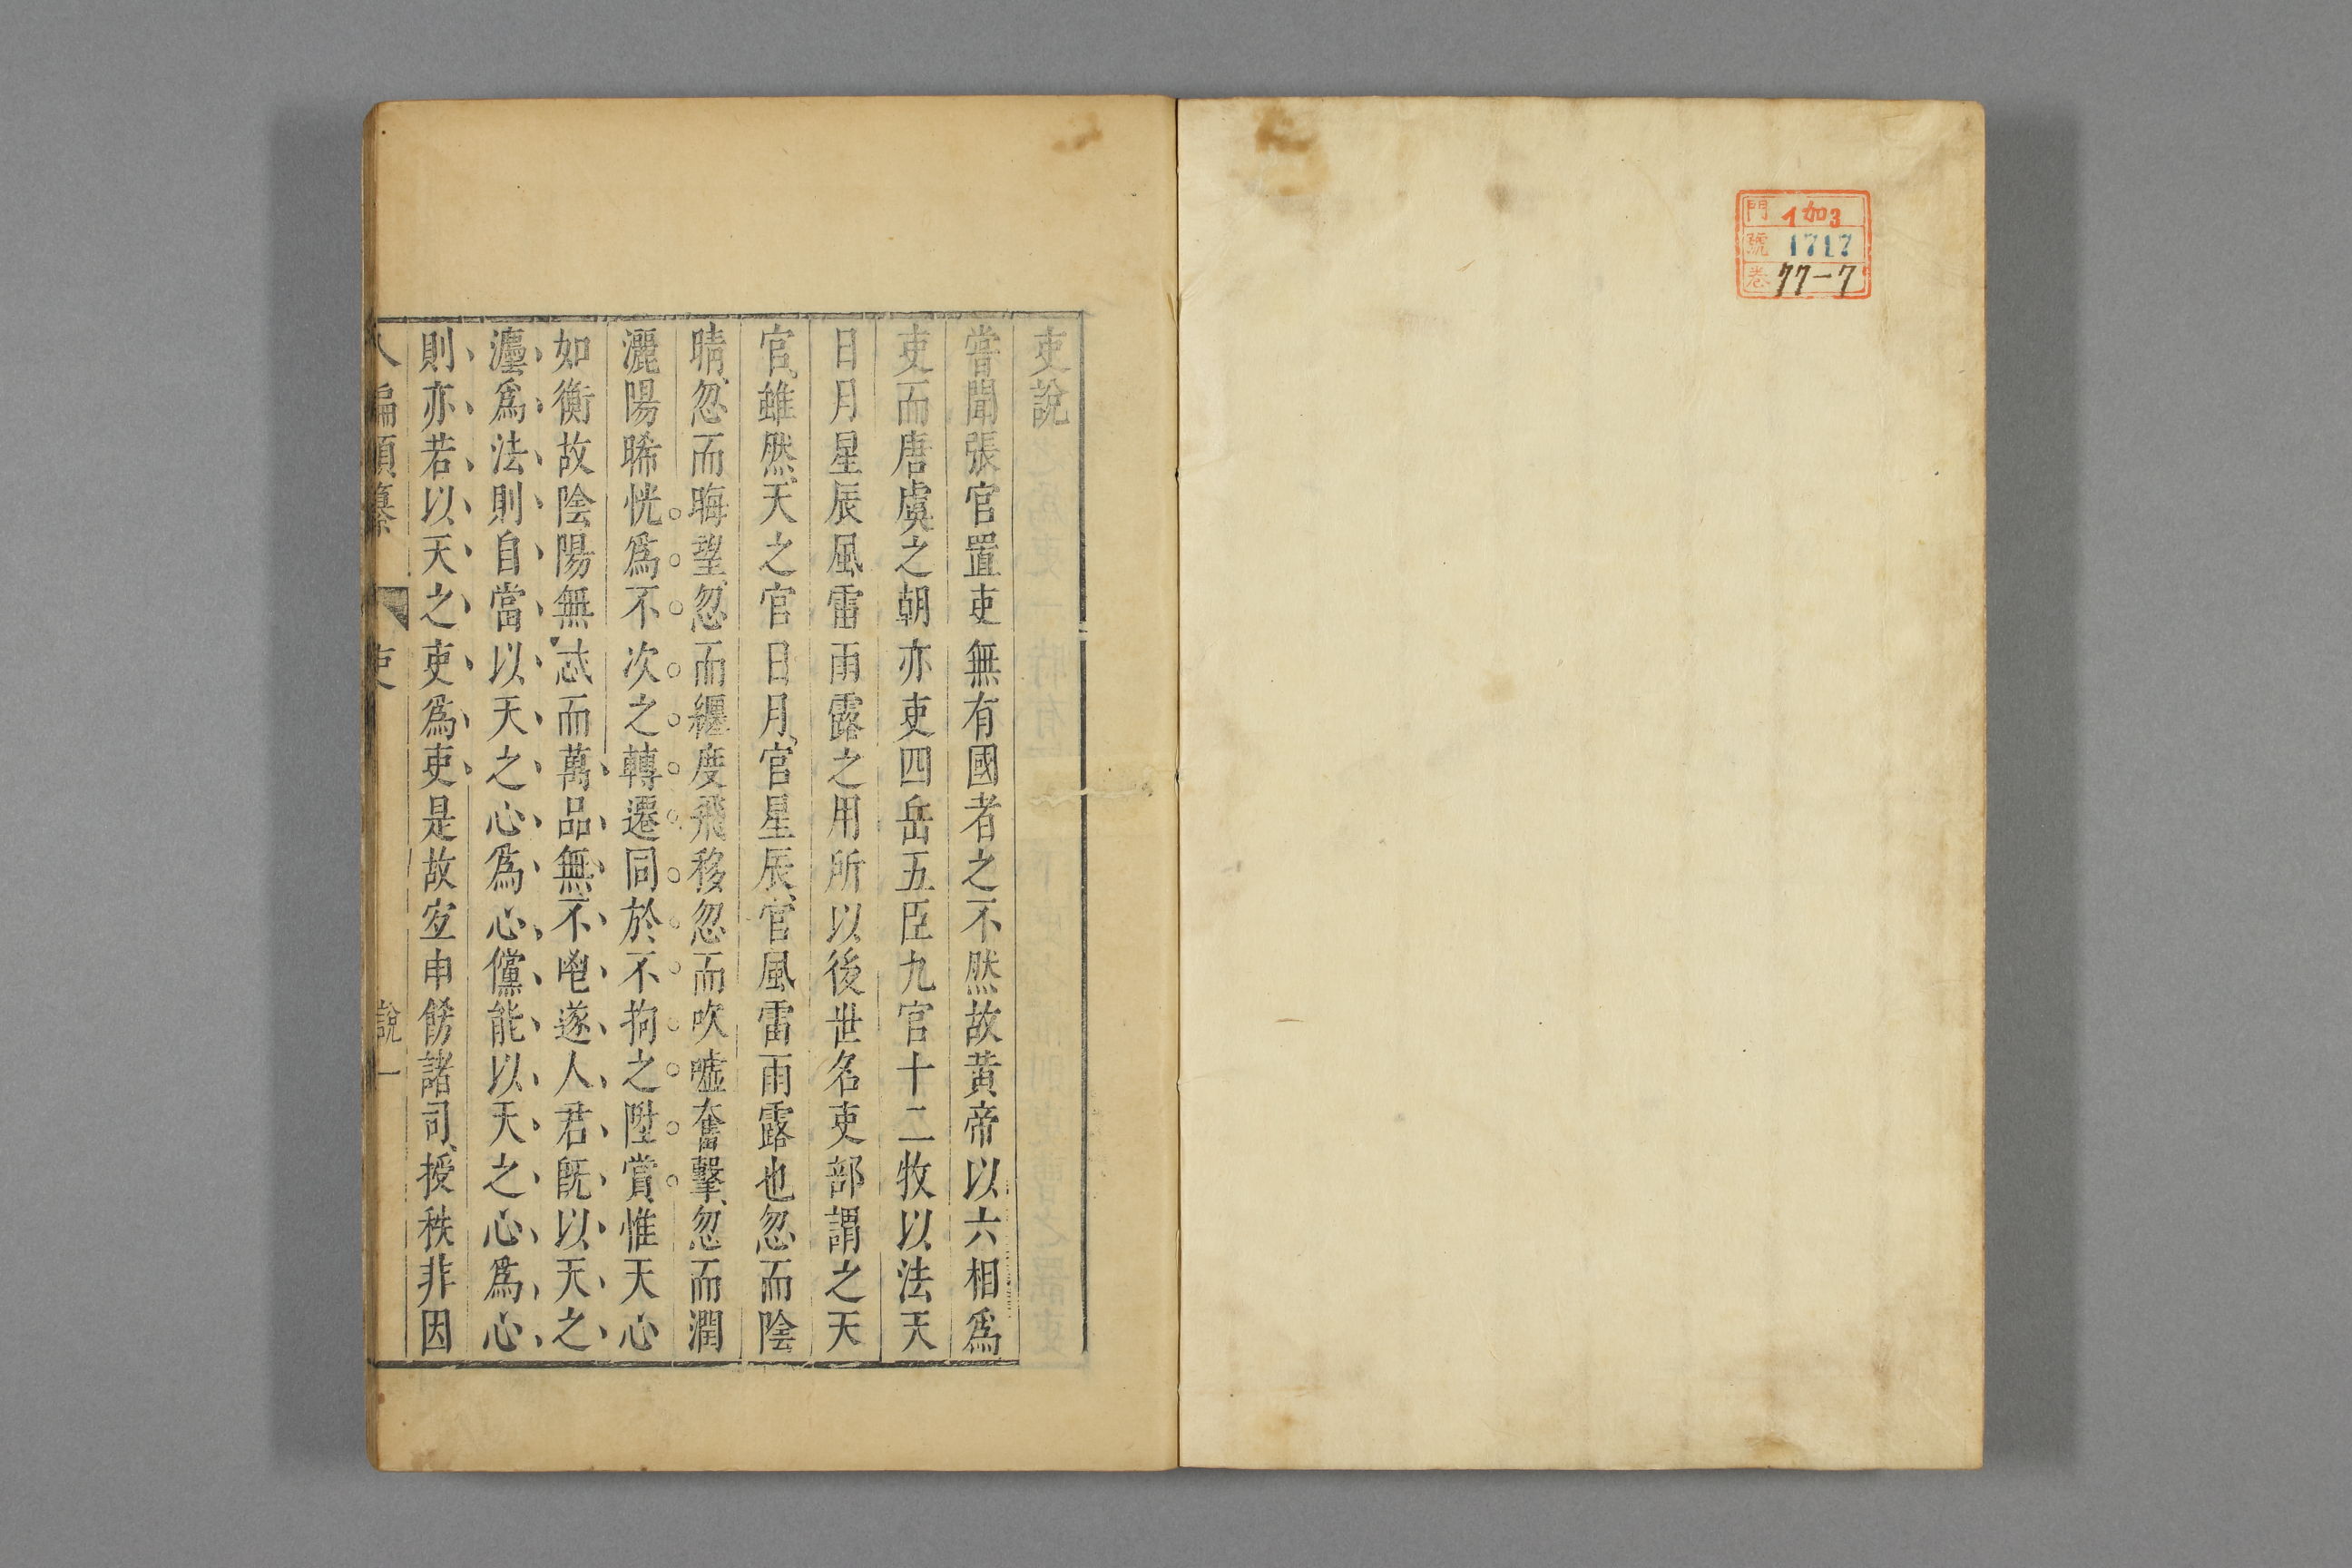 門 イ加3
號 1717
卷 77-7
吏說
嘗聞張官置吏無有國者之不然故黃帝以六相爲
吏而唐虞之朝亦吏四岳五臣九官十二牧以法天
日月星辰風雷雨露之用所以後世名吏部謂之天
官雖然天之官日月官星辰官風雷雨露也忽而陰
晴忽而晦望忽而纏度飛移忽而吹噓奮擊忽而潤
灑陽晞恍爲不次之轉遷同於不拘之陞賞惟天心
如衡故陰陽無忒而萬品無不鬯遂人君旣以天之
灋爲法則自當以天之心爲心儻能以天之心爲心
則亦若以天之吏爲吏是故宜申飭諸司授秩非因
八編類纂 吏 說 一